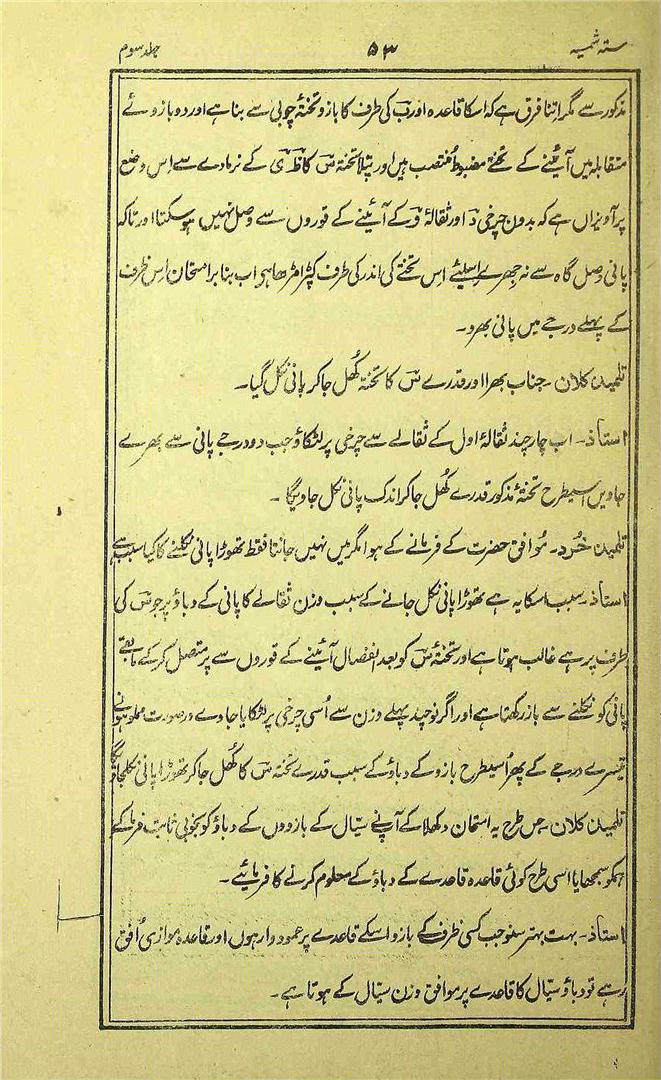 ستہ شمسیہ ۵۳ جلد سوم
مذکور سے مگر اتنا فرق ہے کہ اسکا قاعدہ اور ب کی طرف کا بازو تختۂ چوبی سے بنا ہے اور دو بازوئے
متقابلہ میں آئینے کے تختے مضبوط منتصب ہیں اور پتلا تختہ س کا ظ ی کے نرمادے سے اس وضع
پر آویزاں ہے کہ بدون چرخی د اور ثقالۂ و کے آئینے کے قوروں سے وصل نہیں ہوسکتا اور تاکہ
پانی وصل گاہ سے نہ جھرے اسلیئے اس تختے کی اندر کی طرف کپڑا مڑھا ہو اب بنا بر امتحان اس ظرف
کے پہلے درجے میں پانی بھرو۔
تلمیذ کلان ۔ جناب بھرا اور قدرے س کا تختہ کُھل جاکر پانی نکل گیا۔
استاذ۔ اب چار چند ثقالۂ اول کے ثقالے سے چرخی پر لٹکاؤ جب دو درجے پانی سے بھرے
جاویں اسیطرح تختۂ مذکور قدرے کُھل جاکر اندک پانی نکل جاویگا ۔
تلمیذ خُرد۔ مُوافق حضرت کے فرمانے کے ہوا مگر میں نہیں جانتا فقط تھوڑا پانی نکلنے کا کیا سبب ہے
استاذ۔ سبب اسکا یہ ہے تھوڑا پانی نکل جانے کے سبب وزن ثقالے کا پانی کے دباؤ پر جو س کی
طرف پر ہے غالب ہوتا ہے اور تختۂ س کو بعد انفصال آئینے کے قوروں سے پر متصل کرکے باقی
پانی کو نکلنے سے باز رکھتا ہے اور اگر نو چند پہلے وزن سے اُسی چرخی پر لٹکایا جاوے در صورت مملو ہونے
تیسرے درجے کے پھر اُسیطرح بازو کے دباؤ کے سبب قدرے تختہ س کا کُھل جاکر تھوڑا پانی نکلجاویگا
تلمیذ کلان جس طرح یہ امتحان دکھلا کے آپنے سیّال کے بازووں کے دباؤ کو بخوبی ثابت فرماکے
ہمکو سمجھایا اسی طرح کوئی قاعدہ قاعدے کے دباؤ کے معلوم کرنے کا فرمائیے ۔
استاذ۔ بہت بہتر سنو جب کسی ظرف کے بازو اسکے قاعدے پر عمود وار ہوں اور قاعدہ موازی اُفق
رہے تو دباؤ سیّال کا قاعدے پر موافق وزن سیّال کے ہوتا ہے۔